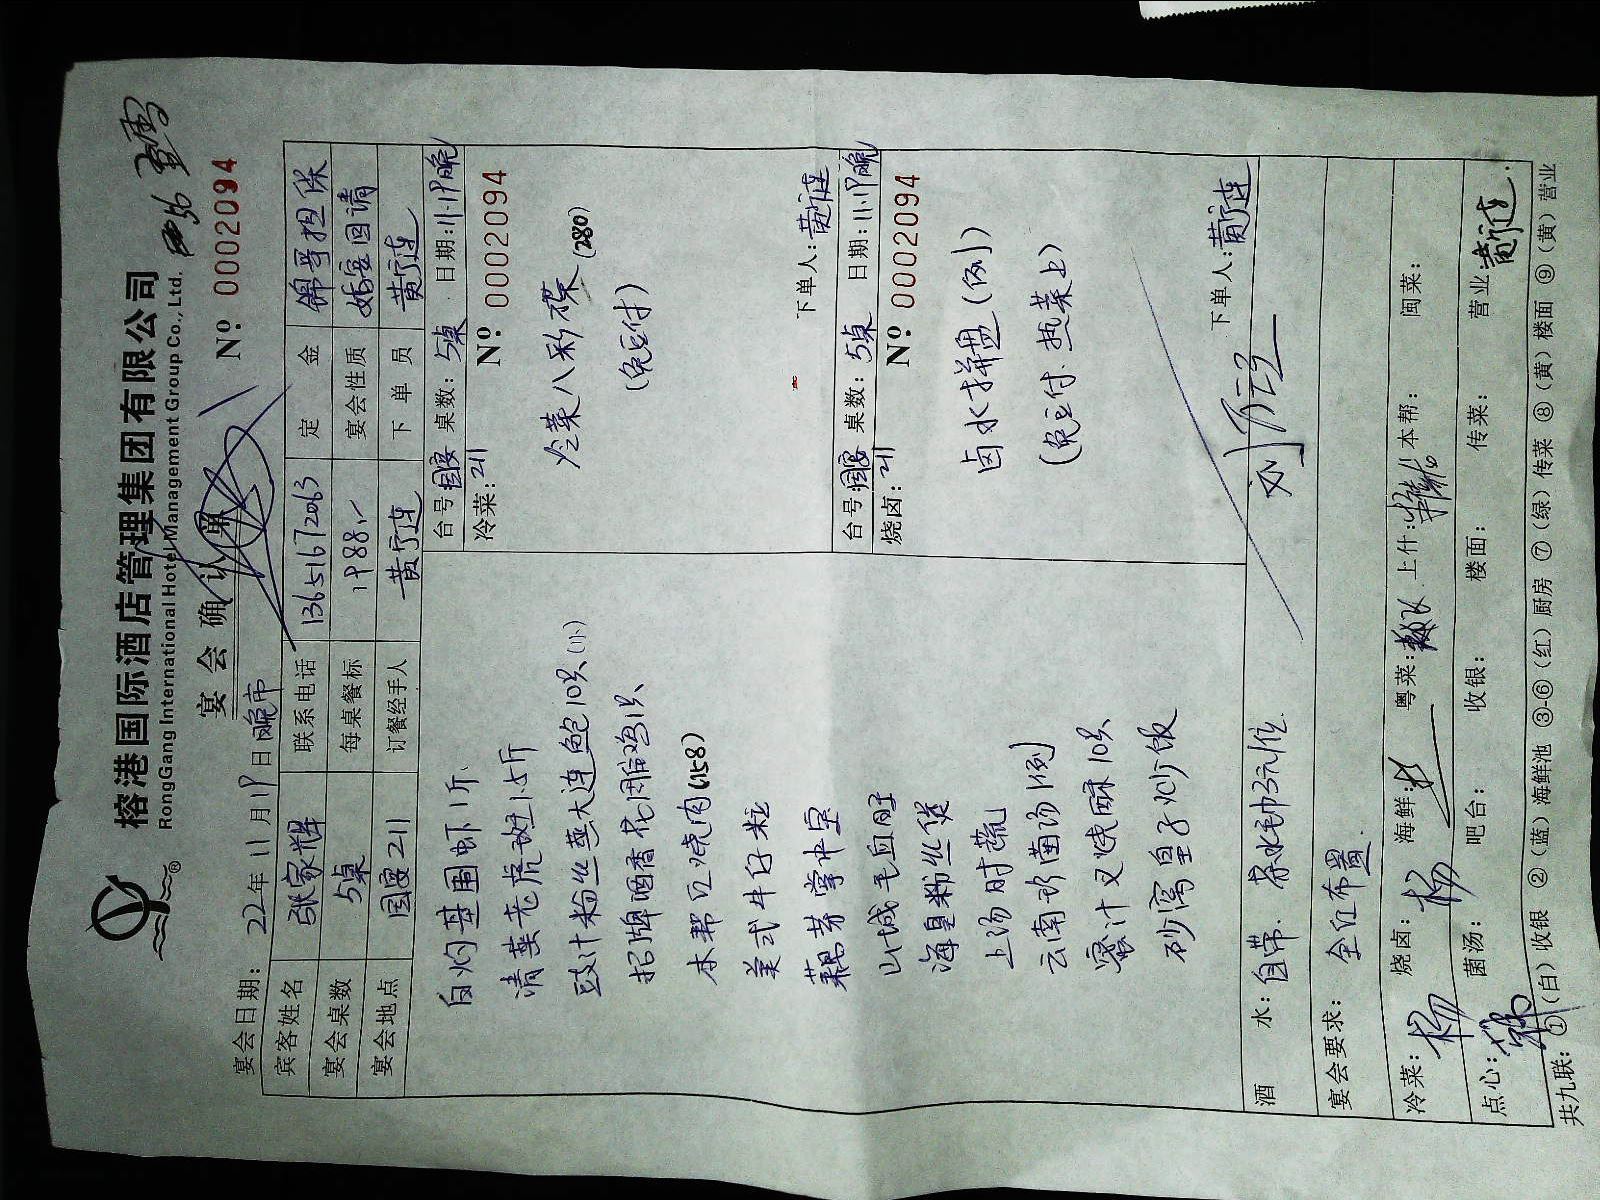 榕港国际酒店管理集团有限公司
RongGang International Hotel Management Group Co., Ltd.
宴会确认单
Nº: 0002094
宴会日期: 22年11月19日晚市
宾客姓名 张家辉 联系电话 13651672063 定金 锦哥担保
宴会桌数 5桌 每桌餐标 1988.- 宴会性质 婚宴回请
宴会地点 国宴211 订餐经手人 黄广连 下单员 黄广连
白灼基围虾1斤
清蒸老虎斑1.5斤
豉汁粉丝蒸大连鲍10只(小)
招牌咽香花雕鸡1只
本帮红烧肉(158)
美式牛仔粒
藕芽掌中宝
山城毛血旺
海皇粉丝煲
上汤时蔬
云南野菌汤1例
蜜汁叉烧酥10只
砂窝皇子炒饭
台号:国宴 桌数: 5桌 日期:11.19晚
冷菜: 211 Nº: 0002094
冷菜八彩碟(280)
(免豆付)
下单人: 黄广连
台号:国宴 桌数: 5桌 日期:11.19晚
烧卤: 211 Nº: 0002094
卤水拼盘(例)
(免豆付.热菜上)
下单人: 黄广连
酒水: 自带. 茶水毛巾3元/位
宴会要求: 全红布置
冷菜: 杨 烧卤: 杨 海鲜: 粤菜: 上什: 本帮: 闽菜:
点心: 菌汤: 吧台: 收银: 楼面: 传菜: 营业: 黄广连
共九联: ①(白)收银 ②(蓝)海鲜池 ③-⑥(红)厨房 ⑦(绿)传菜 ⑧(黄)楼面 ⑨(黄)营业